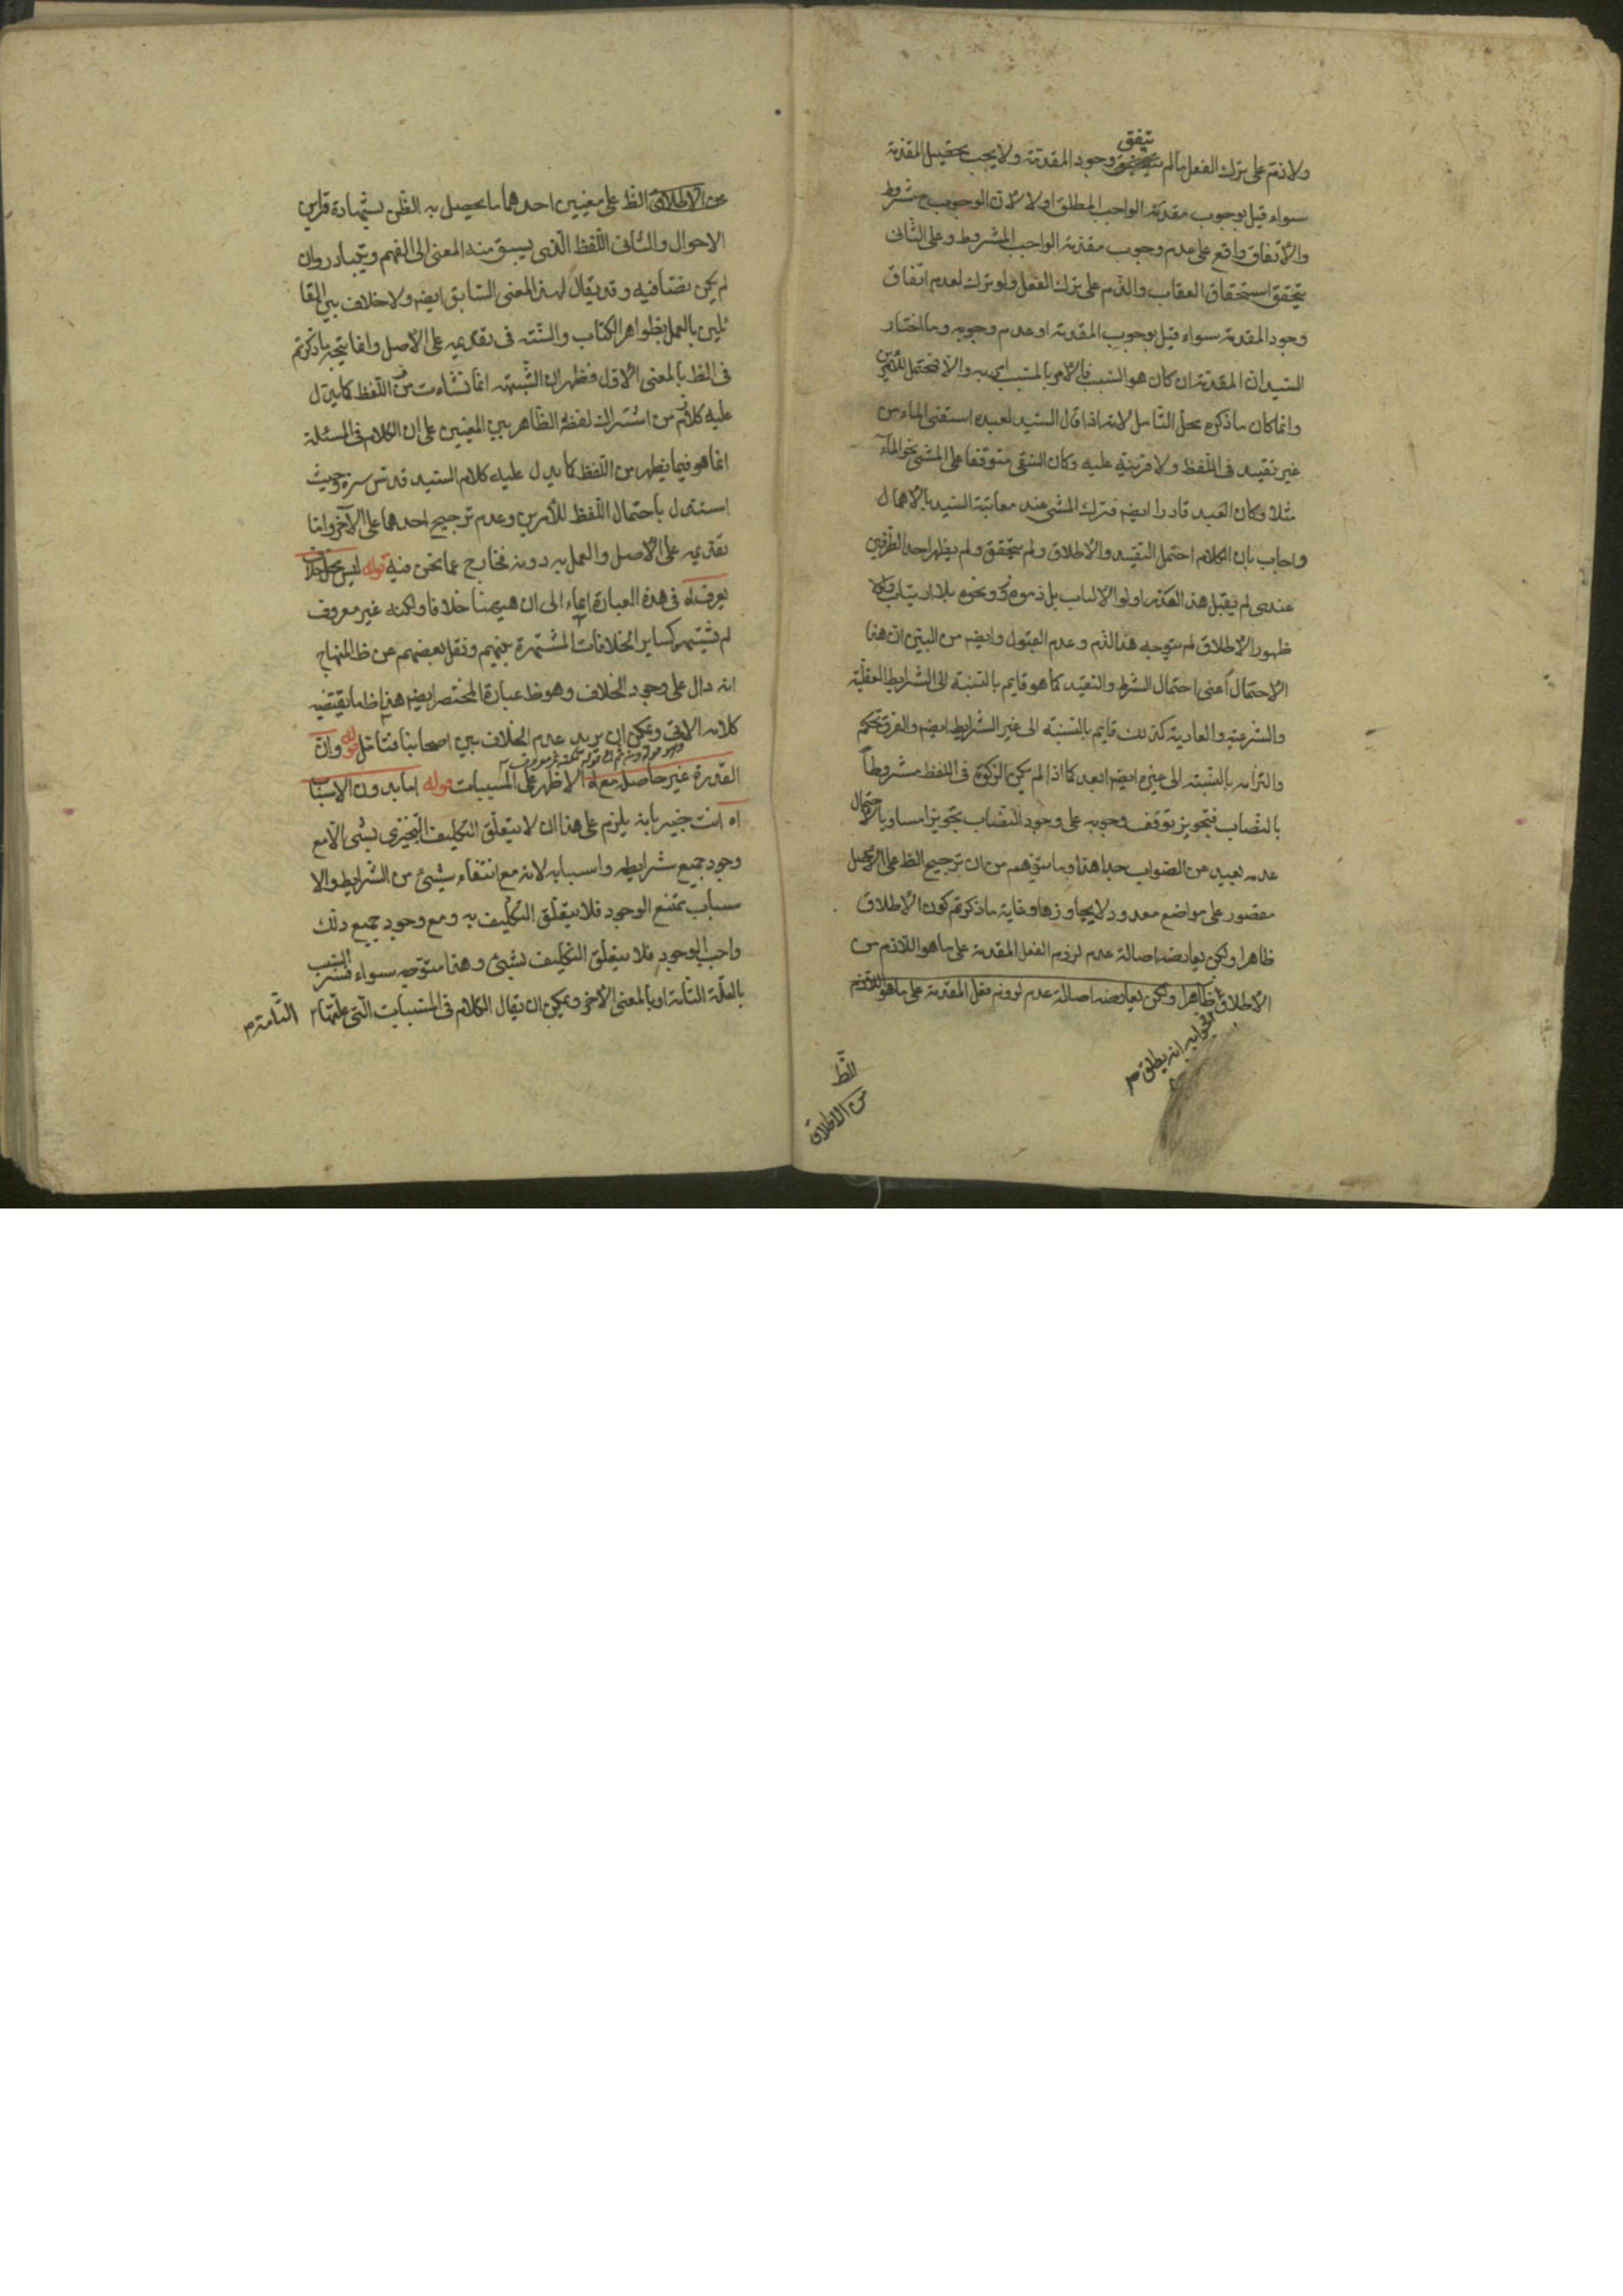 يتفق
ولا ذم على ترك الفعل ما لم وجود المقدمة ولا يجب تحصيل المقدمة
سواء قيل بوجوب مقدمة الواجب المطلق او لا لان الوجوب ح مشروط
والاتفاق واقع على عدم وجوب مقدمة الواجب المشروط وعلى الثانى
يتحقق استحقاق العقاب والذم على ترك الفعل ولو ترك لعدم اتفاق
وجود المقدمة سواء قيل بوجوب المقدمة او عدم وجوبه وما اختار
السيد ان المقدمة ان كان هو السبب فالامر بالمسبب امر به والا فمحتمل للامرين
وانما كان ما ذكره محل التامل لانه اذا قال السيد لعبده اسقنى الماء من
غير تقييد فى اللفظ ولا قرينة عليه وكان السقى متوقفا على المشى نحو الماء
مثلا وكان العبد قادرا ايضم فترك المشى عند معاتبة السيد بالاهمال
واجاب بان الكلام احتمل التقييد والاطلاق ولم يتحقق ولم يظهر احد الطرفين
عندى لم يقبل هذا العذر اولوا الالباب بل ذموه ونحوه بلا ارتياب ولولا
ظهور الاطلاق لم يتوجه هذا الذم وعدم القبول وايضم من البين ان هذا
الاحتمال اعنى احتمال الشرط والتقييد كما هو قايم بالنسبة الى الشرايط العقلية
والشرعية والعادية كذلك قايم بالنسبة الى غير الشرايط ايضم والفرق تحكم
والتزامه بالنسبة الى غيره ايضم ابعد كما اذا لم يكن الزكوة فى اللفظ مشروطاً
بالنصاب فتجويز توقف وجوبه على وجود النصاب تجويزا مساويا لاحتمال
عدمه بعيد عن الصواب جدا هذا وما يتوهم من ان ترجيح الظ على الاصل
مقصور على مواضع معدود لا يجاوزها وغاية ما ذكرتم كون الاطلاق
ظاهرا ولكن يعارضه اصالة عدم لزوم الفعل المقدمة على ما هو اللازم من
الاطلاق ظاهرا ولكن يعارضه اصالة عدم لزوم فعل المقدمة على ما هو اللازم
فجوابه انه يطلق
الظ
من الاطلاق
من الاطلاق الظ على معنيين احدهما ما يحصل به الظن بشهادة قراين
الاحوال والثانى اللفظ الذى يسبق منه المعنى الى الفهم ويتبادر وان
لم يكن نصا فيه وقد يقال لهذا المعنى السابق ايضم ولا خلاف بين القا
ئلين بالعمل بظواهر الكتاب والسنة فى تقديمه على الاصل وانما يتجه ما ذكرتم
فى الظ بالمعنى الاول فظهر ان الشبهة انما نشاءت من اللفظ كما يدل
عليه كلامه من اشتراك لفظة الظاهر بين المعنيين على ان الكلام فى المسئلة
انما هو فيما يظهر من اللفظ كما يدل عليه كلام السيد قدس سره حيث
استدل باحتمال اللفظ للامرين وعدم ترجيح احدهما على الاخر واما
تقديمه على الاصل والعمل به دونه فخارج عما نحن فيه قوله ليس محل خلاف
يعرف اه فى هذه العبارة ايماء الى ان هيهنا خلافا ولكنه غير معروف
لم يشتهر كساير الخلافات المشتهرة بينهم ونقل بعضهم عن ظ المنهاج
انه دال على وجود الخلاف وهو ظ عبارة المختصر ايضم هذا ظ ما يقتضيه
كلامه الاتى ويمكن ان يريد عدم الخلاف بين اصحابنا فتامل قوله وان
القدرة غير حاصلة مع اه الاظهر على المسببات قوله اما بدون الاسباب
اه انت خبير بانه يلزم على هذا ان لا يتعلق التكليف التنجيزى بشئ الا مع
وجود جميع شرايطه واسبابه لانه مع انتفاء شيئ من الشرايط والا
سباب يمتنع الوجود فلا يتعلق التكليف به ومع وجود جميع ذلك
واجب الوجود فلا يتعلق التكليف بشيئ وهذا متوجه سواء فسر السبب
بالعلة التامة او بالمعنى الاخر ويمكن ان يقال الكلام فى المسببات التى علتها
التامة